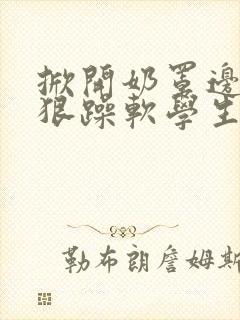 掀開奶罩邊
狠躁軟學生
勒布朗詹姆斯